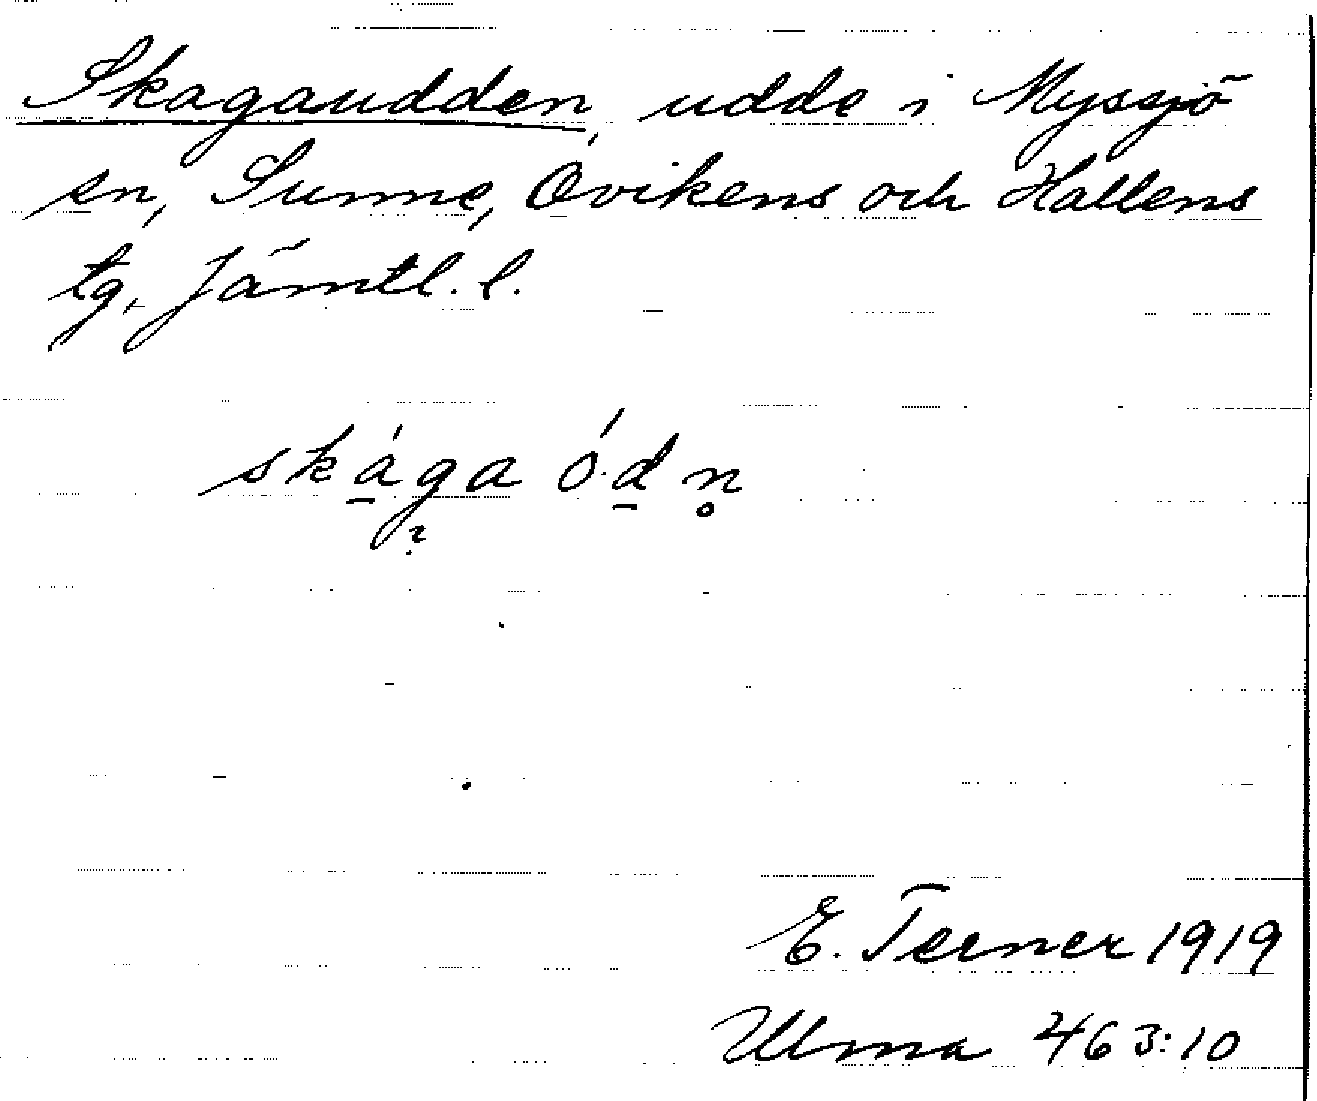 Skagaudden, udde i Myssjö
sn, Sunne, Ovikens och Hallens
tg, Jämtl. l.
skága ó.dn̥
E. Terner 1919
Ulma 463:10